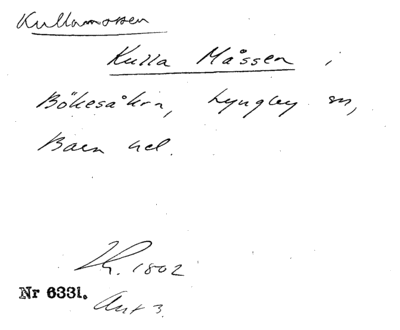 Kullamossen
Kulla Måssen i
Bökesåkra, Lyngby sn,
Bara hd.
1802
Nr 6331.
Akt 3.